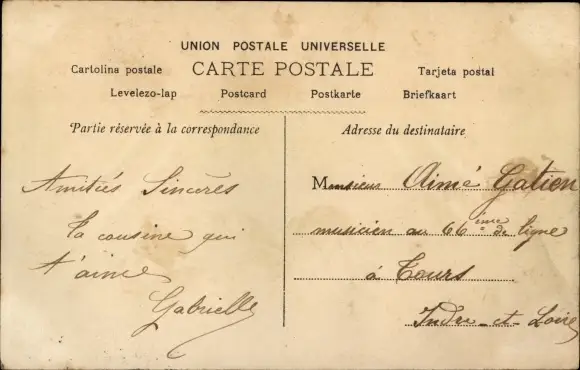 UNION POSTALE UNIVERSELLE
Cartolina postale CARTE POSTALE Tarjeta postal
Levelezo-lap Postcard Postkarte Briefkaart
Partie réservée à la correspondance
Amitiés Sincères
ta cousine qui
t'aime
Gabrielle
Adresse du destinataire
Monsieur Aimé Gatien
musicien au 66ième de ligne
à Tours
Indre-et-Loire